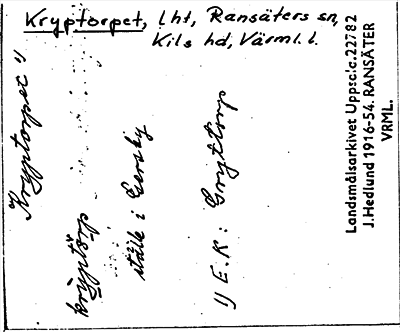 Kryptorpet, lht, Ransäters sn,
Kils hd, Värml. l.
Kryptorpet 1)
kryptörp
ställe i Gersby
1) E.K: Gryttorp
Landsmålsarkivet Upps:c.22782
J.Hedlund 1916-54. RANSÄTER
VRML.